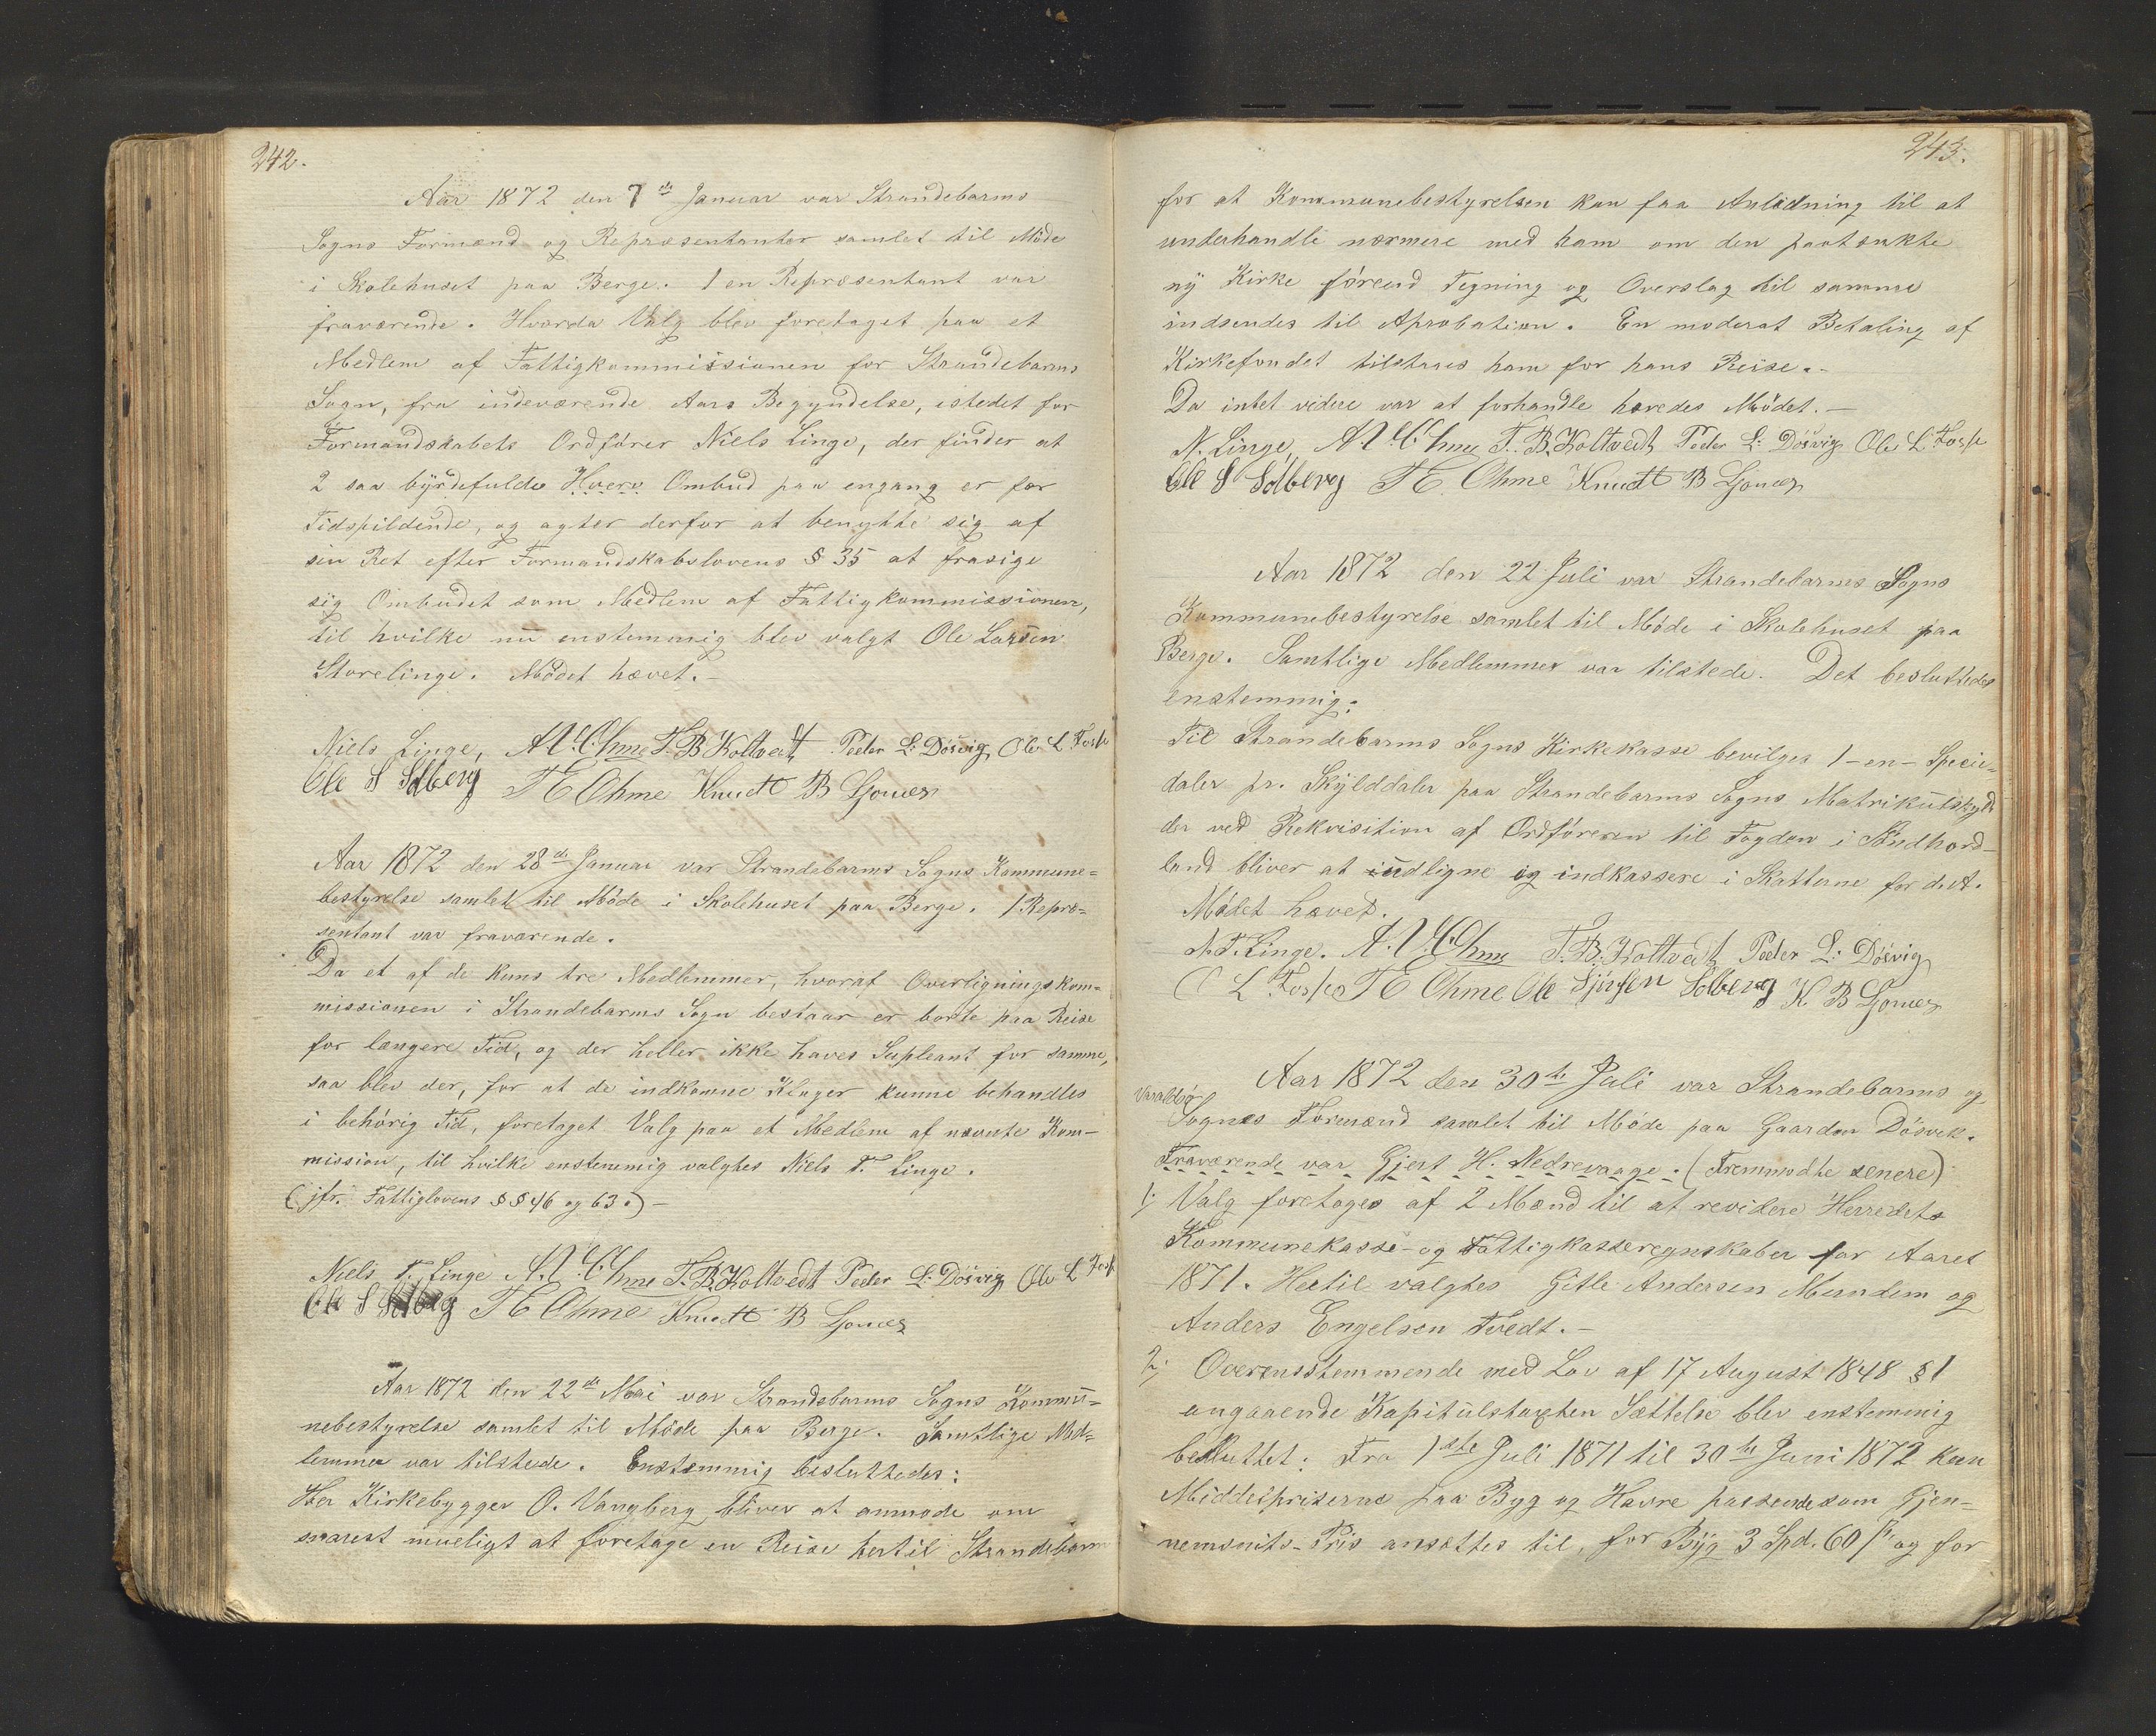 242.
Aar 1872 den 7de Januar var Strandebarms
Sogns Formænd og Repræsentanter samlet til Møde
i Skolehuset paa Berge. 1 en Repræsentant var
fraværende. Hvorda Valg blev foretaget paa et
Medlem af Fattigkommissionen for Strandebarms
Sogn, fra indeværende Aars Begyndelse, istedet for
Formandskabets Ordfører Niels Linge, der finder at
2 saa byrdefulde Hverv Ombud paa engang er for
Tidspildende, og agter derfor at benytte sig af
sin Ret efter Formandskabslovens § 35 at frasige
sig Ombudet som Medlem af Fattigkommissionen,
til hvilke nu enstemmig blev valgt Ole Larsen
Storelinge. Mødet hævet.-
Niels Linge, A. V. Ohme T. B. Holtvedt Peder L: Døsvig Ole L Foss
Ole S Solberg T E Ohme Knudt B Ljones
Aar 1872 den 28de Januar var Strandebarms Sogns Kommune=
bestyrelse samlet til Møde i Skolehuset paa Berge. 1 Repræ=
sentant var fraværende.
Da et af de kuns tre Medlemmer, hvoraf Overligningskom=
missionen i Strandebarms Sogn bestaar er borte paa Reise
for længere Tid, og der heller ikke haves Supleant for samme,
saa blev der, for at de indkomne Klager kunne behandles
i behørig Tid, foretaget Valg paa et Medlem af nævnte Kom-
mission, til hvilke enstemmig valgtes Niels T. Linge.
(jfr. Fattiglovens §§ 46 og 63.)-
Niels T. Linge A. V. Ohme T. B. Holtvedt Peder L: Døsvig Ole L Foss
Ole S Solberg T E Ohme Knudt B Ljones
Aar 1872 den 22de Mai var Strandebarms Sogns Kommu=
nebestyrelse samlet til Møde paa Berge. Samtlige Med=
lemmer var tilstede. Enstemmig besluttedes:
Her Kirkebygger O. Vangberg bliver at anmode om
snarest mueligt at foretage en Reise hertil Strandebarm
243.
for at Kommunebestyrelsen kan faa Anledning til at
underhandle nærmere med ham om den paatænkte
ny Kirke førend Tegning og Overslag til samme
indsendes til Aprobation. En moderat Betaling af
Kirkefondet tilstaaes ham for hans Reise.-
Da intet videre var at forhandle hævedes Mødet.-
N. Linge, A. V. Ohme T. B. Holtvedt Peder L: Døsvig Ole L Foss
Ole S Solberg T E Ohme Knudt B Ljones
Aar 1872 den 22 Juli var Strandebarmes Sogns
Kommunebestyrelse samlet til Møde i Skolehuset paa
Berge. Samtlige Medlemmer var tilstede. Det besluttedes
enstemmig:
Til Strandebarms Sogns Kirkekasse bevilges 1-en- Specie=
daler pr. Skylddaler paa Strandebarms Sogns Matrikulskyld
der ved Rekvisition af Ordføreren til Fogden i Søndhord-
land bliver at udligne og indkassere i Skatterne for d. A.
Mødet hævet.
N. T. Linge. A. V. Ohme T. B. Holtvedt Peder L: Døsvig
O L Foss T E Ohme Ole Sjursen Solberg K B Ljones
Aar 1872 den 30te Juli var Strandebarms og
Varaldsø
Sognes Formænd samlet til Møde paa Gaarden Døsvik.
Fraværende var Gjert H. Nedrevaage. (Fremmødte senere)
1; Valg foretoges af 2 Mænd til at revidere Herredets
Kommunekasse- og Fattigkasseregnskaber for Aaret
1871. Hertil valgtes Gitle Andersen Mundem og
Anders Engelsen Tvedt.-
2; Overensstemmende med Lov af 17 August 1848 § 1
angaaende Kapitulstaxten Sættelse blev enstemmig
besluttet: Fra 1ste Juli 1871 til 30te Juni 1872 kan
Middelpriserne paa Byg og Havre passende som Gjen-
nemsnits-Pris ansættes til, for Byg 3 Spd. 60 ß og for